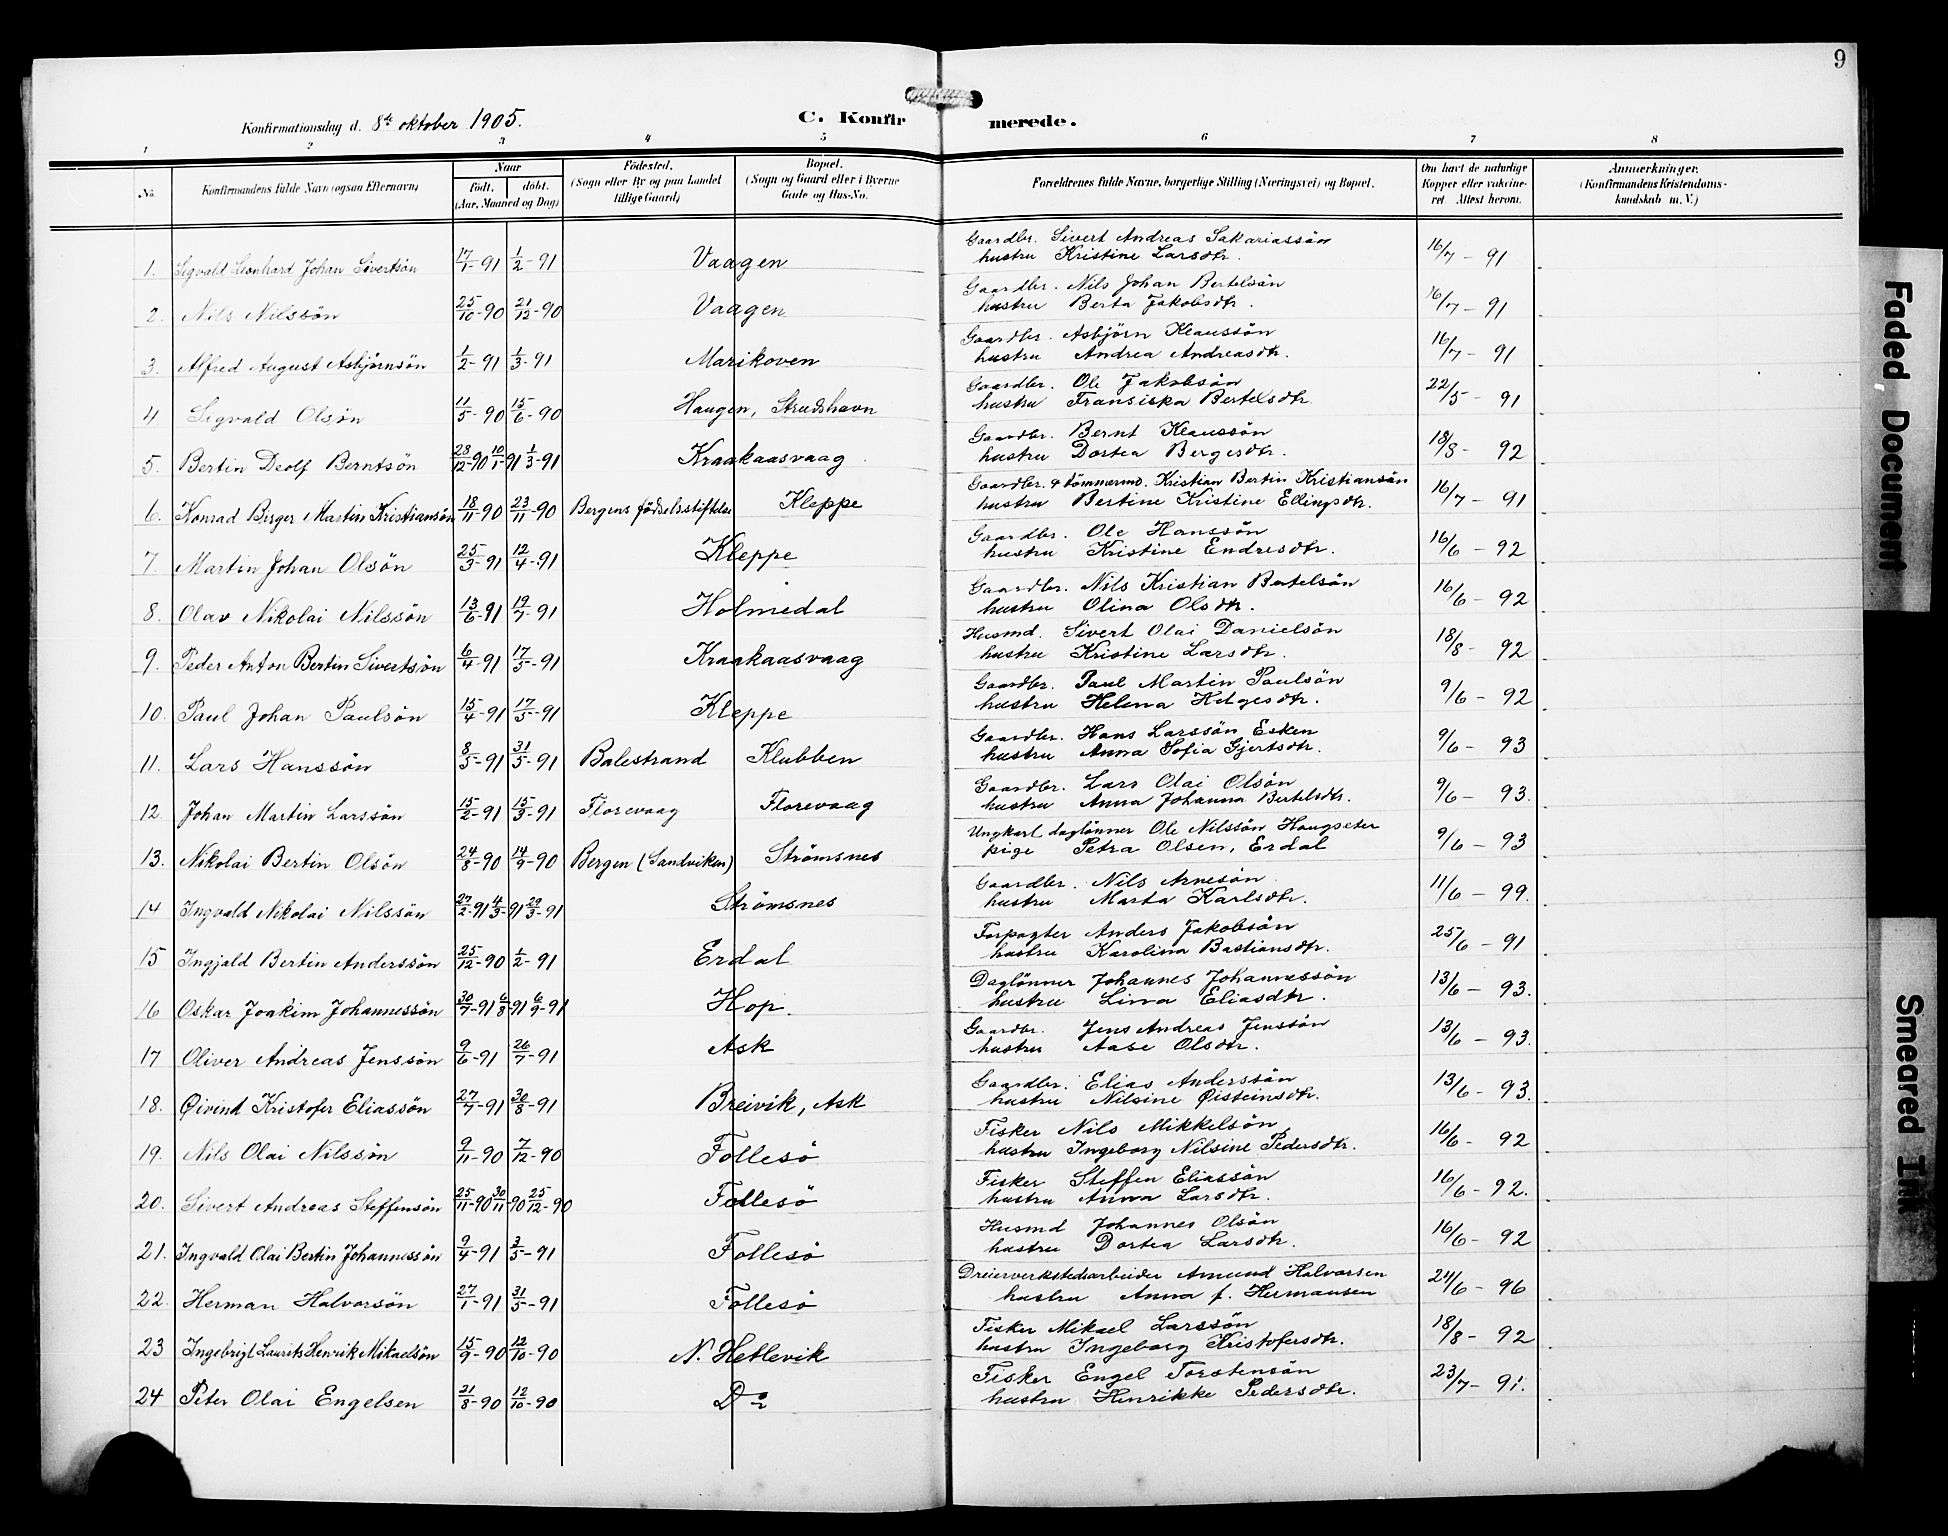 9
Konfirmationsdag d. 8de oktober 1905.
C. Konfirmerede.
1 2 3 4 5 6 7 8
No.
Konfirmandens fulde Navn (ogsaa Efternavn)
Naar
født. døbt.
(Aar, Maaned og Dag)
Födested.
(Sogn eller By og paa Landet tillige Gaard)
Bopæl.
(Sogn og Gaard eller i Byerne Gade og Hus-No.
Forældrenes fulde Navne, borgerlige Stilling (Næringsvei) og Bopæl.
Om havt de naturlige Kopper eller vakcineret. Attest herom.
Anmærkninger.
(Konfirmandens Kristendomskundskab m. V.)
1. Sigvald Leonhard Johan Sivertsön 17/1-91 1/2-91 Vaagen Gaardbr. Sivert Andreas Sakariassön
hustru Kristine Larsdtr. 16/7-91
2. Nils Nilssön 25/10-90 21/12-90 Vaagen Gaardbr. Nils Johan Bertelsön
hustru Berta Jakobsdtr. 16/7-91
3. Alfred August Asbjörnsön 1/2-91 1/3-91 Marikoven Gaardbr. Asbjörn Klaussön
hustru Andrea Andreasdtr. 16/7-91
4 Sigvald Olsön 11/5-90 15/6-90 Haugen, Strudshavn Gaardbr. Ole Jakobsön
hustru Fransiska Bertelsdtr. 22/5-91
5. Bertin Deolf Berntsön 28/12-90 10/1-91 1/3-91 Kraakaasvaag Gaardbr. Bernt Klaussön
hustru Dortea Bergesdtr. 18/8-92
6. Konrad Birger Martin Kristiansön 18/11-90 23/11-90 Bergens födselsstiftelse Kleppe Gaardbr. & tömmermd. Kristian Bertin Kristiansön
hustru Bertine Kristine Ellingsdtr. 16/7-91
7. Martin Johan Olsön 25/3-91 12/4-91 Kleppe Gaardbr. Ole Hanssön
hustru Kristine Endresdtr. 16/6-92
8. Olav Nikolai Nilssön 13/6-91 19/7-91 Holmedal Gaardbr. Nils Kristian Bertelsön
hustru Olina Olsdtr. 16/6-92
9. Peder Anton Bertin Sivertsön 6/4-91 17/5-91 Kraakaasvaag Husmd. Sivert Olai Danielsön
hustru Kristine Larsdtr. 18/8-92
10. Paul Johan Paulsön 15/4-91 17/5-91 Kleppe Gaardbr. Paul Martin Paulsön
hustru Helena Helgesdtr. 9/6-92
11. Lars Hanssön 8/5-91 31/5-91 Balestrand Klubben Gaardbr. Hans Larssön Esken
hustru Anna Sofia Gjertsdtr. 9/6-93
12. Johan Martin Larssön 15/2-91 15/3-91 Florevaag Florevaag Gaardbr. Lars Olai Olsön
hustru Anna Johanna Bertelsdtr. 9/6-93.
13. Nikolai Bertin Olsön 24/8-90 14/9-90 Bergen (Sandviken) Strömsnes Ungkarl daglönner Ole Nilssön Haugseter
pige Petra Olsen, Erdal 9/6-93
14 Ingvald Nikolai Nilssön 27/2-91 4/3-91 29/3-91 Strömsnes Gaardbr. Nils Arnesön
hustru Marta Karlsdtr. 11/6-99.
15 Ingjald Bertin Anderssön 25/12-90 1/2-91 Erdal Forpagter Anders Jakobsön
hustru Karolina Bastiansdtr. 25/6-91
16 Oskar Joakim Johannessön 30/7-91 6/8-91 6/9-91 Hop. Daglönner Johannes Johannessön
hustru Lina Eliasdtr. 13/6-93.
17 Oliver Andreas Jenssön 9/6-91 26/7-91 Ask Gaardbr. Jens Andreas Jenssön
hustru Aase Olsdtr. 13/6-93.
18. Øivind Kristofer Eliassön 27/7-91 30/8-91 Breivik, Ask Gaardbr. Elias Anderssön
hustru Nilsine Øisteinsdtr. 13/6-93.
19. Nils Olai Nilssön 9/11-90 7/12-90 Follesö Fisker Nils Mikkelsön
hustru Ingeborg Nilsine Pedersdtr. 16/6-92
20. Sivert Andreas Steffensön 25/11-90 30/11-90 25/12-90 Follesö Fisker Steffen Eliassön
hustru Anna Larsdtr. 16/6-92.
21. Ingvald Olai Bertin Johannessön 9/4-91 3/5-91 Follesö Husmd Johannes Olsön
hustru Dortea Larsdtr. 16/6-92
22. Herman Halvorsön 27/1-91 31/5-91 Follesö Dreierverkstedsarbeider Amund Halvorsen
hustru Anna f. Hermansen 24/6-96
23 Ingebrigt Laurits Henrik Mikaelsön 15/9-90 12/10-90 N. Hetlevik Fisker Mikael Larssön
hustru Ingeborg Kristofersdtr. 18/8-92
24 Peter Olai Engelsen 21/8-90 12/10-90 Do Fisker Engel Torstensön
hustru Henrikke Pedersdtr. 23/7-91.
Faded Document
Smeared Ink